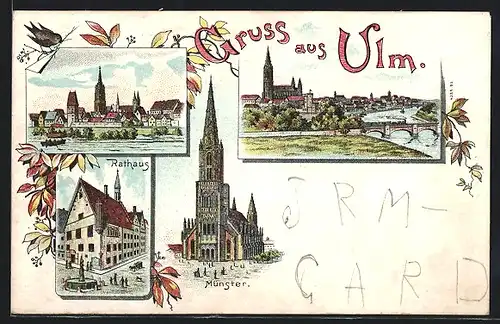 Gruss aus Ulm.
Rathaus
Münster.
JRM-
CARD